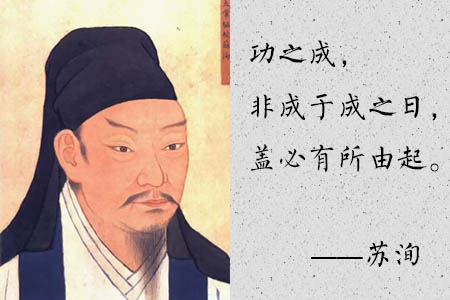 功之成，
非成于成之日，
盖必有所由起。
——苏洵